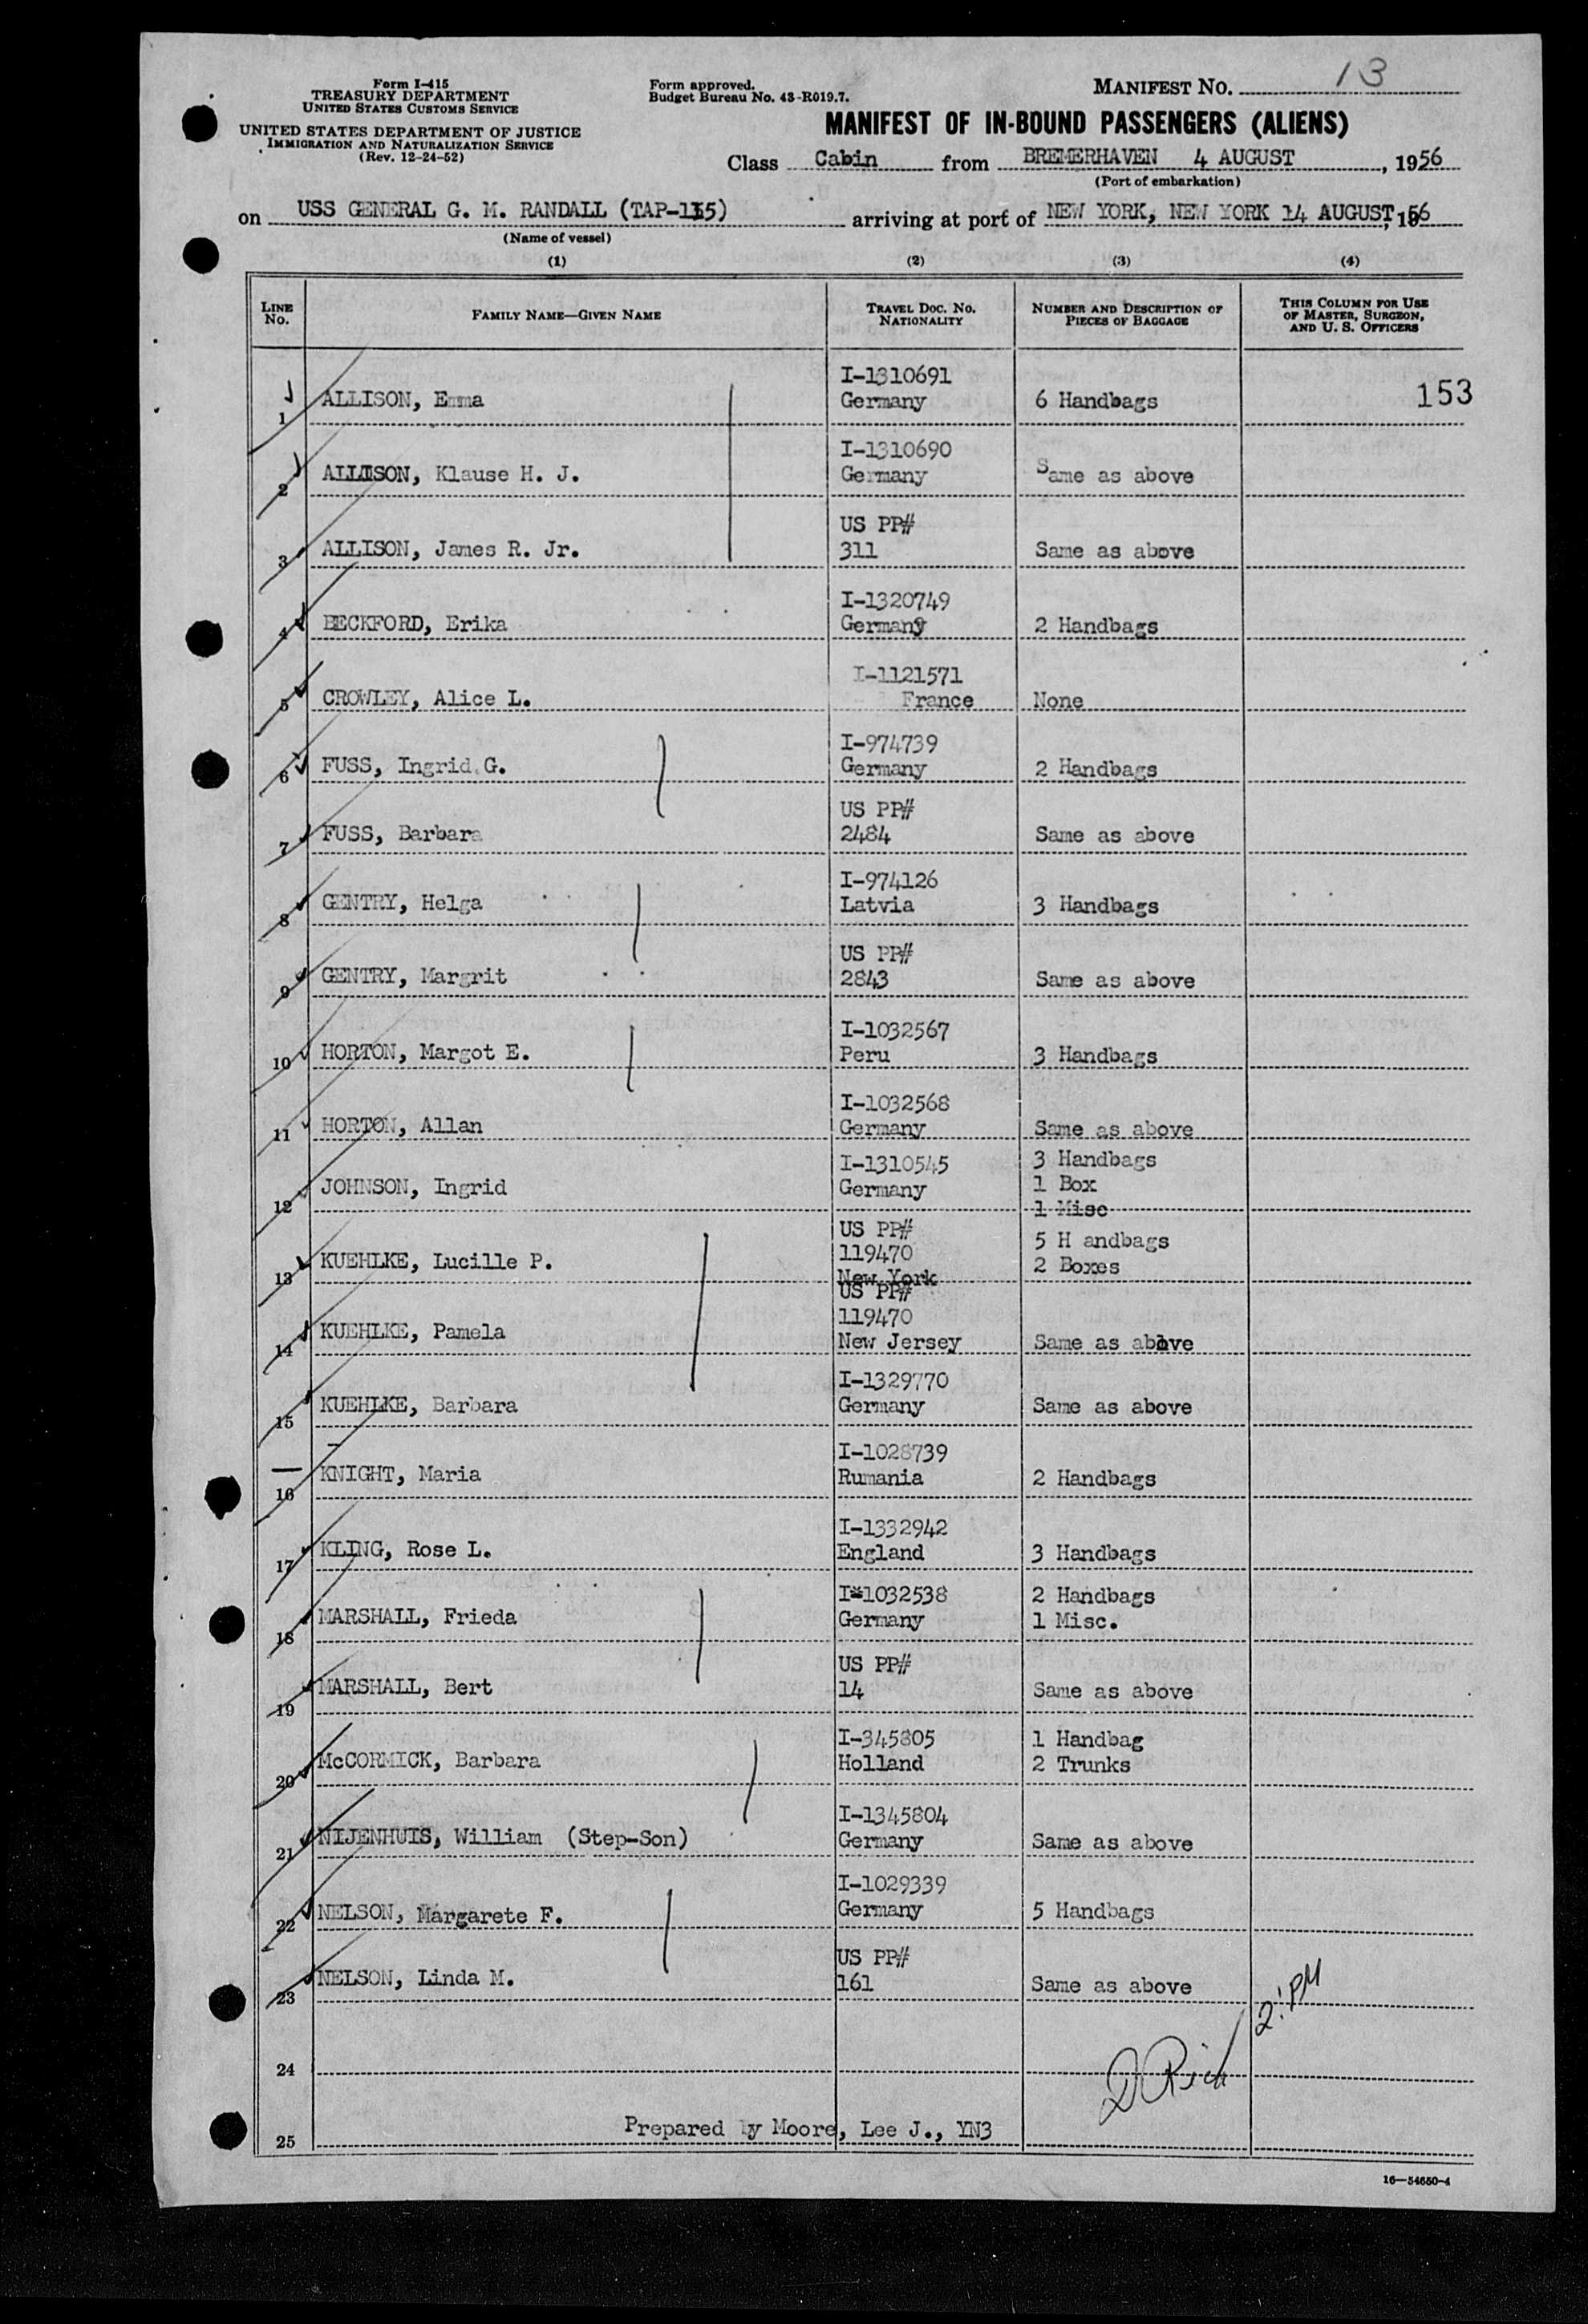 Form I-415
TREASURY DEPARTMENT
UNITED STATES CUSTOMS SERVICE
UNITED STATES DEPARTMENT OF JUSTICE
IMMIGRATION AND NATURALIZATION SERVICE
(Rev. 12-24-52)
Form approved.
Budget Bureau No. 43-R019.7.
MANIFEST NO. 13
MANIFEST OF IN-BOUND PASSENGERS (ALIENS)
Class Cabin from BREMERHAVEN 4 AUGUST, 1956
(Port of embarkation)
on USS GENERAL G. M. RANDALL (TAP-115) arriving at port of NEW YORK, NEW YORK 14 AUGUST, 1956
(Name of vessel)
(1) (2) (3) (4)
LINE NO. FAMILY NAME—GIVEN NAME TRAVEL DOC. NO. NATIONALITY NUMBER AND DESCRIPTION OF PIECES OF BAGGAGE THIS COLUMN FOR USE OF MASTER, SURGEON, AND U. S. OFFICERS
1 ALLISON, Emma I-1310691 Germany 6 Handbags 153
2 ALLISON, Klause H. J. I-1310690 Germany Same as above
3 ALLISON, James R. Jr. US PP# 311 Same as above
4 BECKFORD, Erika I-1320749 Germany 2 Handbags
5 CROWLEY, Alice L. I-1121571 France None
6 FUSS, Ingrid G. I-974739 Germany 2 Handbags
7 FUSS, Barbara US PP# 2484 Same as above
8 GENTRY, Helga I-974126 Latvia 3 Handbags
9 GENTRY, Margrit US PP# 2843 Same as above
10 HORTON, Margot E. I-1032567 Peru 3 Handbags
11 HORTON, Allan I-1032568 Germany Same as above
12 JOHNSON, Ingrid I-1310545 Germany 3 Handbags 1 Box 1 Misc
13 KUEHLKE, Lucille P. US PP# 119470 New York 5 H andbags 2 Boxes
14 KUEHLKE, Pamela US PP# 119470 New Jersey Same as above
15 KUEHLKE, Barbara I-1329770 Germany Same as above
16 KNIGHT, Maria I-1028739 Rumania 2 Handbags
17 KLING, Rose L. I-1332942 England 3 Handbags
18 MARSHALL, Frieda I-1032538 Germany 2 Handbags 1 Misc.
19 MARSHALL, Bert US PP# 14 Same as above
20 McCORMICK, Barbara I-345805 Holland 1 Handbag 2 Trunks
21 NIJENHUIS, William (Step-Son) I-1345804 Germany Same as above
22 NELSON, Margarete F. I-1029339 Germany 5 Handbags
23 NELSON, Linda M. US PP# 161 Same as above
2:PM
24 D Rich
25 Prepared by Moore, Lee J., YN3
16—54650-4